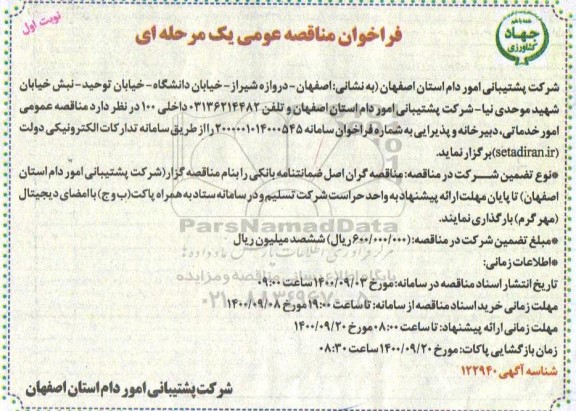 نوبت اول
جهاد
کشاورزی
فراخوان مناقصه عمومی یک مرحله ای
شرکت پشتیبانی امور دام استان اصفهان (به نشانی: اصفهان - دروازه شیراز - خیابان دانشگاه - خیابان توحید - نبش خیابان
شهید موحدی نیا - شرکت پشتیبانی امور دام استان اصفهان و تلفن ۰۳۱۳۶۲۱۴۴۸۲ داخلی ۱۰۰ در نظر دارد مناقصه عمومی
امور خدماتی، دبیرخانه و پذیرایی به شماره فراخوان سامانه ۲۰۰۰۰۰۱۰۱۴۰۰۰۵۴۵ را از طریق سامانه تدارکات الکترونیکی دولت
(setadiran.ir) برگزار نماید.
*نوع تضمین شرکت در مناقصه: مناقصه گران اصل ضمانتنامه بانکی را بنام مناقصه گزار (شرکت پشتیبانی امور دام استان
اصفهان) تا پایان مهلت ارائه پیشنهاد به واحد حراست شرکت تسلیم و در سامانه ستاد به همراه پاکت (ب و ج) با امضای دیجیتال
(مهر گرم) بارگذاری نمایند.
*مبلغ تضمین شرکت در مناقصه: (۶۰۰/۰۰۰/۰۰۰ ریال) ششصد میلیون ریال
*اطلاعات زمانی:
تاریخ انتشار اسناد مناقصه در سامانه: مورخ ۱۴۰۰/۰۹/۰۳ ساعت ۰۹:۰۰
مهلت زمانی خرید اسناد مناقصه از سامانه: تا ساعت ۱۹:۰۰ مورخ ۱۴۰۰/۰۹/۰۸
مهلت زمانی ارائه پیشنهاد: تا ساعت ۰۸:۰۰ مورخ ۱۴۰۰/۰۹/۲۰
زمان بازگشایی پاکات: مورخ ۱۴۰۰/۰۹/۲۰ ساعت ۰۸:۳۰
شناسه آگهی ۱۲۲۹۴۰
شرکت پشتیبانی امور دام استان اصفهان
ParsNamadData
پایگاه اطلاع رسانی مناقصه و مزایده